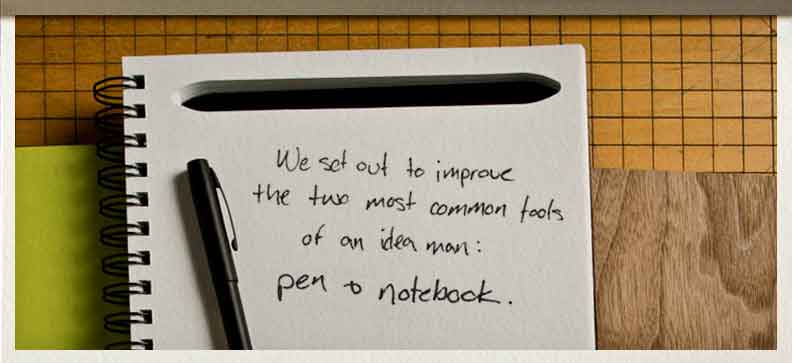 We set out to improve
the two most common tools
of an idea man:
pen & notebook.